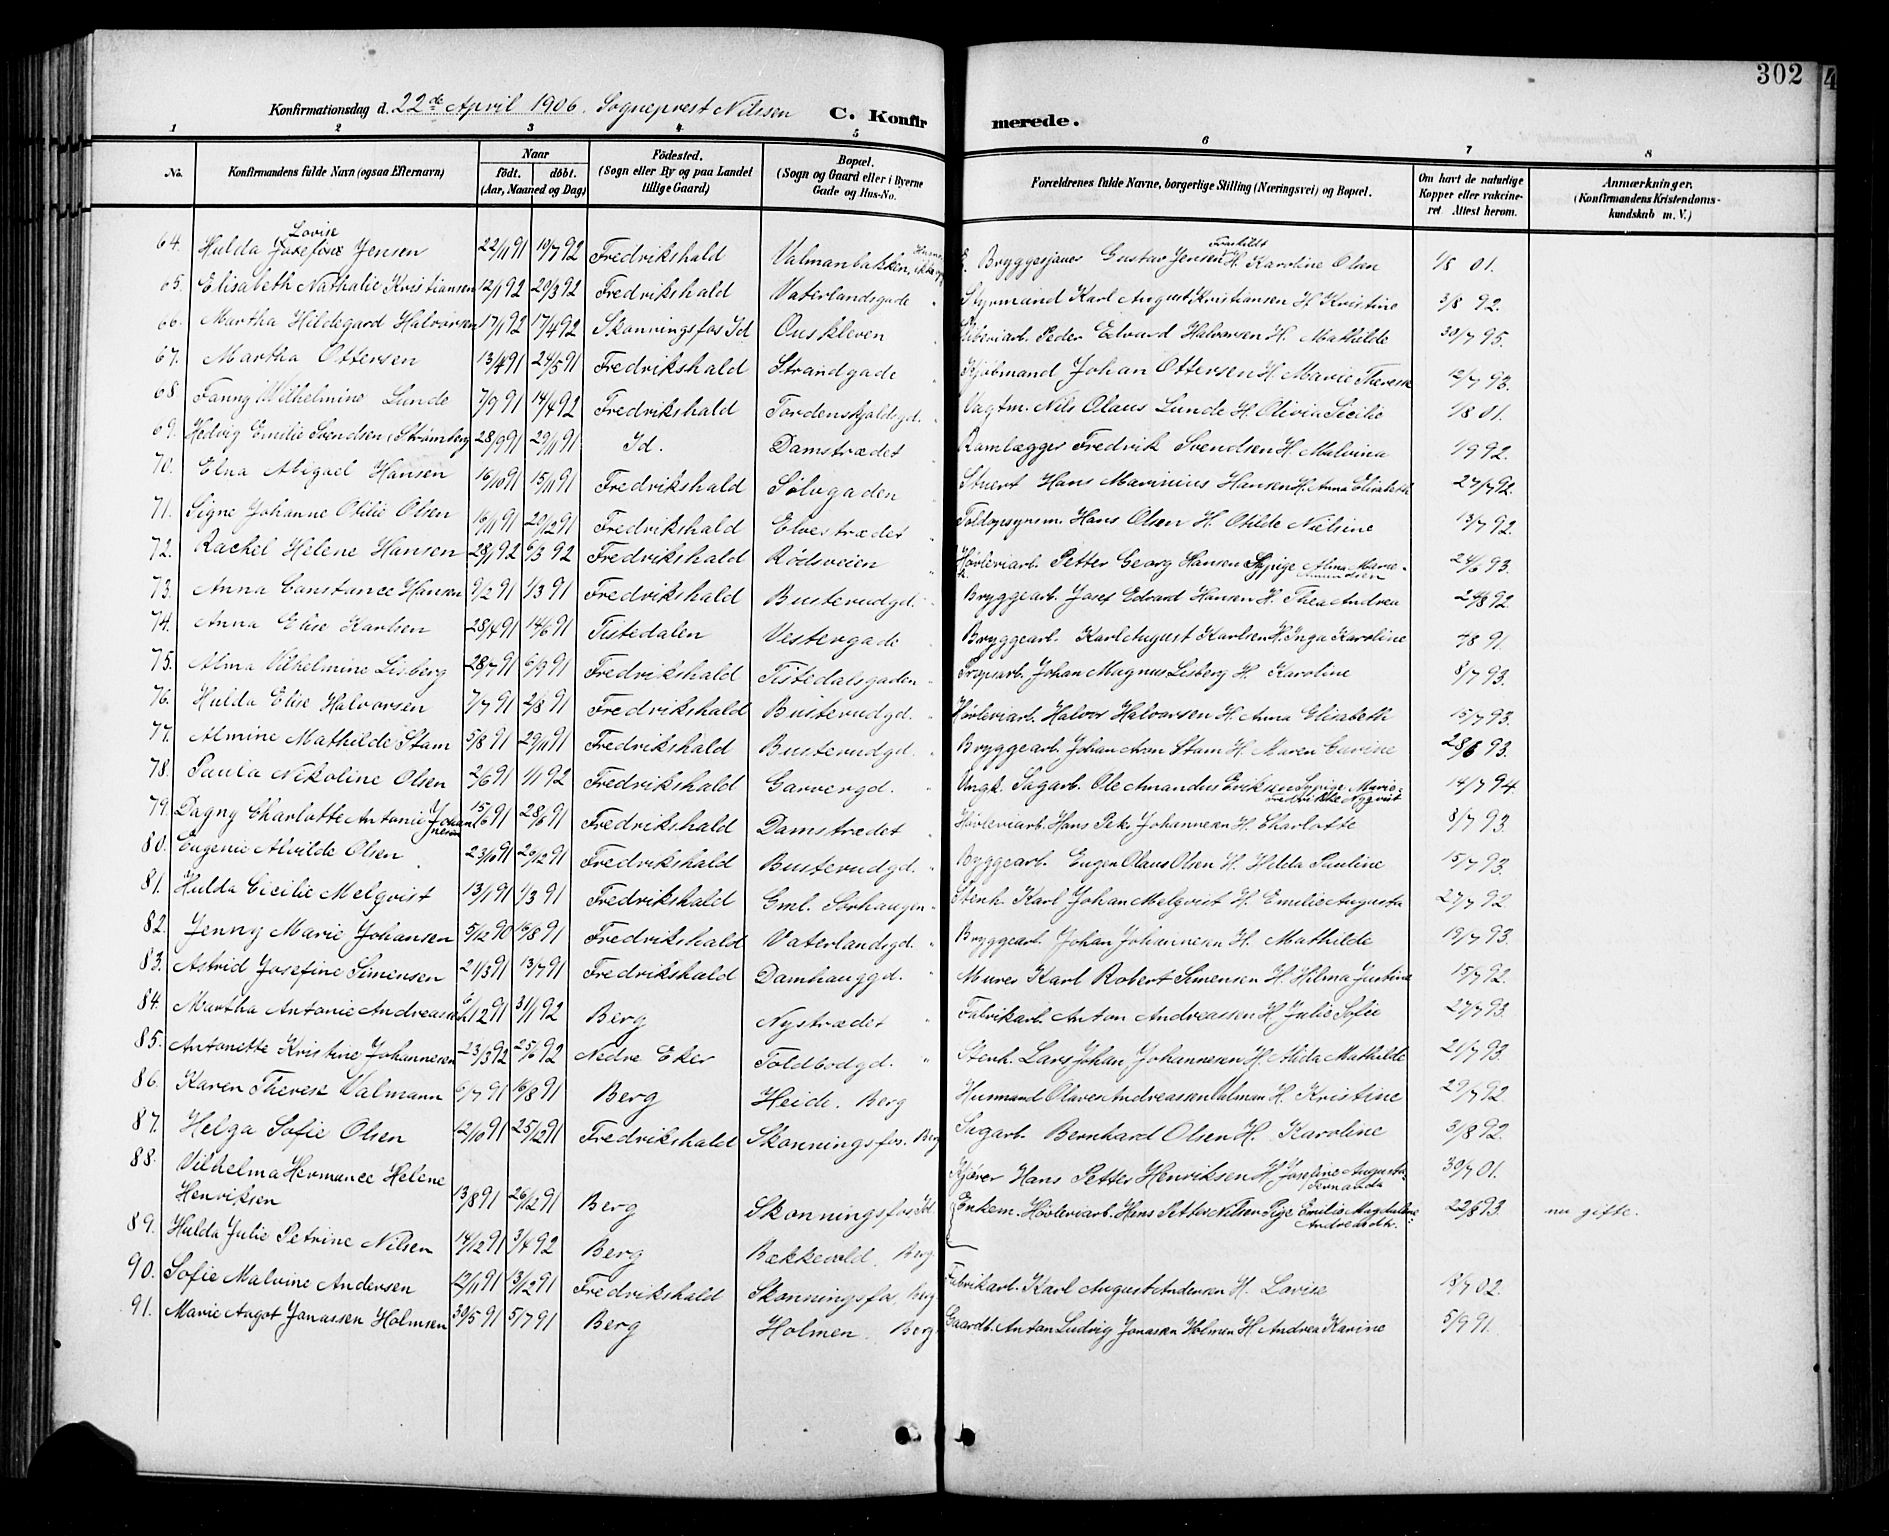 302
Konfirmationsdag d. 22de April 1906. Sogneprest Nilssen C. Konfirmerede.
1 2 3 4 5 6 7 8
No. Konfirmandens fulde Navn (ogsaa Efternavn) Naar født. døbt. (Aar, Maaned og Dag) Fødested. (Sogn eller By og paa Landet tillige Gaard) Bopæl. (Sogn og Gaard eller i Byerne Gade og Hus-No. Forældrenes fulde Navne, borgerlige Stilling (Næringsvei) og Bopæl. Om havt de naturlige Kopper eller vakcineret. Attest herom. Anmærkninger. (Konfirmandens Kristendomskundskab m. V.)
64. Hulda Josefine Lovise Jensen 22/11 91 10/7 92 Fredrikshald Valmanbakken, Bryggesjauer Gustav Jensen Fraskildt H. Karoline Olsen 1/8 01.
65. Elisabeth Nathalie Kristiansen 12/1 92 20/3 92 Fredrikshald Vaterlandsgade Styrmand Karl August Kristiansen H. Kristine 3/8 92.
66. Martha Hildegard Halvorsen 17/1 92 17/4 92 Skonningsfos Id Ouskleven Peder Edvard Halvorsen H. Mathilde 30/7 95.
67. Martha Ottersen 13/4 91 24/5 91 Fredrikshald Strandgade Kjøbmand Johan Ottersen H. Marie Therese 12/7 93.
68. Fanny Wilhelmine Lunde 7/9 91 14/4 92 Fredrikshald Tordenskjoldgd. Vagtm. Nils Olaus Lunde H. Olivia Secilie 1/8 01.
69. Hedvig Emilie Svendsen (Strømberg 28/9 91 29/11 91 Id. Damstrædet Ramlægger Fredrik Svendsen H. Malvina 1/9 92.
70. Elna Abigael Hansen 16/10 91 15/11 91 Fredrikshald Sølvgaden Stuert Hans Marinius Hansen H. Anna Elisabeth 27/7 92.
71. Signe Johanne Otilie Olsen 16/11 91 20/12 91 Fredrikshald Elvestrædet Toldopsynsm. Hans Olsen H. Otilde Nielsine 13/7 92.
72. Rachel Helene Hansen 28/1 92 6/3 92 Fredrikshald Rødsveien Høvleriarb. Petter Georg Hansen Sypige Alma Marie Amundsen 24/6 93.
73. Anna Constance Hansen 9/2 91 1/3 91 Fredrikshald Busterudgd. Bryggearb. Josef Edvard Hansen H. Thea Andrea 24/8 92.
74. Anna Elise Karlsen 28/4 91 14/6 91 Tistedalen Vestergade Bryggearb. Karl August Karlsen H. Inga Karoline 7/8 91.
75. Alma Vilhelmine Lisberg 28/7 91 6/9 91 Fredrikshald Tistedalsgaden Propsarb. Johan Magnus Lisberg H. Karoline 8/7 93.
76. Hulda Elise Halvorsen 7/7 91 2/8 91 Fredrikshald Busterudgd. Høvleriarb. Halvor Halvorsen H. Anna Elisabeth 15/7 93.
77. Almine Mathilde Stam 5/8 91 29/11 91 Fredrikshald Busterudgd. Bryggearb. Johan Aron Stam H. Maren Gurine 28/6 93.
78. Paula Nikoline Olsen 2/6 91 1/1 92 Fredrikshald Garvergd. Ungk. Sagarb. Ole Amandus Eriksen Sypige Marie Fredrikke Nyqvist 14/7 94.
79. Dagny Charlotte Antonie Johannesen 15/6 91 28/6 91 Fredrikshald Damstrædet Høvleriarb. Hans Petr. Johannesen H. Charlotte 8/7 93.
80. Eugenie Alvilde Olsen 23/10 91 26/12 91 Fredrikshald Busterudgd. Byggearb. Eugen Olaus Olsen H. Hilda Pauline 15/7 93.
81. Hulda Cicilie Melqvist 13/1 91 1/3 91 Fredrikshald Gml. Sørhaugen Stenh. Karl Johan Melqvist H. Emilie Augusta 27/7 92
82. Jenny Marie Johansen 5/12 90 16/8 91 Fredrikshald Vaterlandsgd. Bryggearb. Johan Johannesen H. Mathilde 19/7 93.
83. Astrid Josefine Simensen 21/3 91 13/7 91 Fredrikshald Damhauggd. Murer Karl Robert Simensen H. Hilma Justine 15/7 92.
84. Martha Antonie Andreassen 6/12 91 31/1 92 Berg Nystrædet Fabrikarb. Anton Andreassen H. Julie Sofie 27/7 93.
85. Antonette Kristine Johannesen 23/3 92 25/6 92 Nedre Eker Toldbodgd. Stenh. Lars Johan Johannesen H. Alida Mathilde 21/7 93.
86. Karen Therese Valmann 6/7 91 16/8 91 Berg Heide. Berg Husmand Olaves Andreassen Valman H. Kristine 29/7 92
87. Helga Sofie Olsen 12/10 91 25/12 91 Fredrikshald Skonningsfos. Berg Sagarb. Bernhard Olsen H. Karoline 3/8 92.
88. Vilhelma Hermance Helene Henriksen 13/8 91 26/12 91 Berg Skonningsfos Id Kjører Hans Petter Henriksen H. Josefine Augusta Fernanda 30/7 01.
89. Hulda Julie Petrine Nilsen 14/12 91 3/4 92 Berg Bækkevold, Berg Enkem. Høvleriarb. Hans Petter Nilsen Pige Emilie Magdalene Andreasdtr. 22/8 93. nu gifte.
90. Sofie Malvine Andersen 12/11 91 13/12 91 Fredrikshald Skonningsfos, Berg Fabrikarb. Karl August Andersen H. Lovise 18/7 02.
91. Marie Angot Jonassen Holmsen 30/5 91 5/7 91 Berg Holmen. Berg Gaardb. Anton Ludvig Jonassen Holmen H. Andrea Karine 5/9 91.